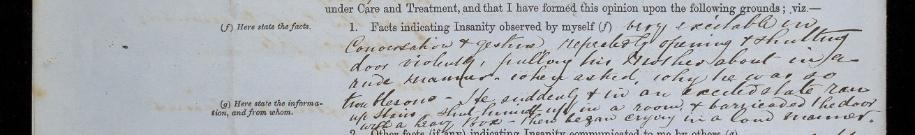 under Care and Treatment, and that I have formed this opinion upon the following grounds; viz.—
(f) Here state the facts.
1. Facts indicating Insanity observed by myself (f) very excitable in
Conversation & gesture repeatedly opening & shutting
door violently, pulling his Mother about in a
rude manner. when asked, why he was so
troublesome - He suddenly & in an excited state ran
up stairs - shut himself up in a room, & barricaded the door
with a heavy Box - then began crying in a loud manner.
(g) Here state the informa-
tion, and from whom.
2. Other facts (if any) indicating Insanity communicated to me by others (g)